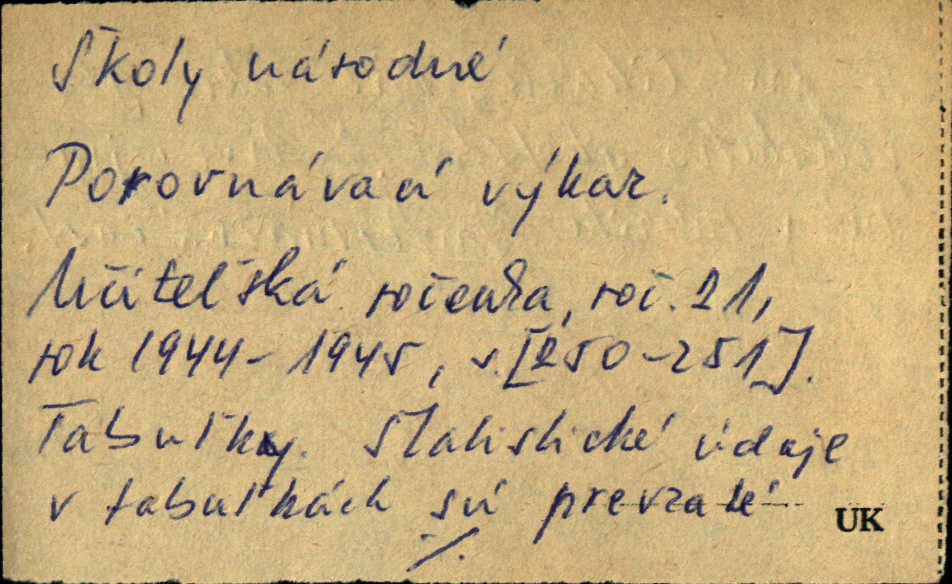 Školy národné
Porovnávací výkaz.
Učiteľská ročenka, roč. 21,
rok 1944-1945, s. [250-251].
Tabuľky. Statistické údaje
v tabuľkách sú prevzaté
UK
./.